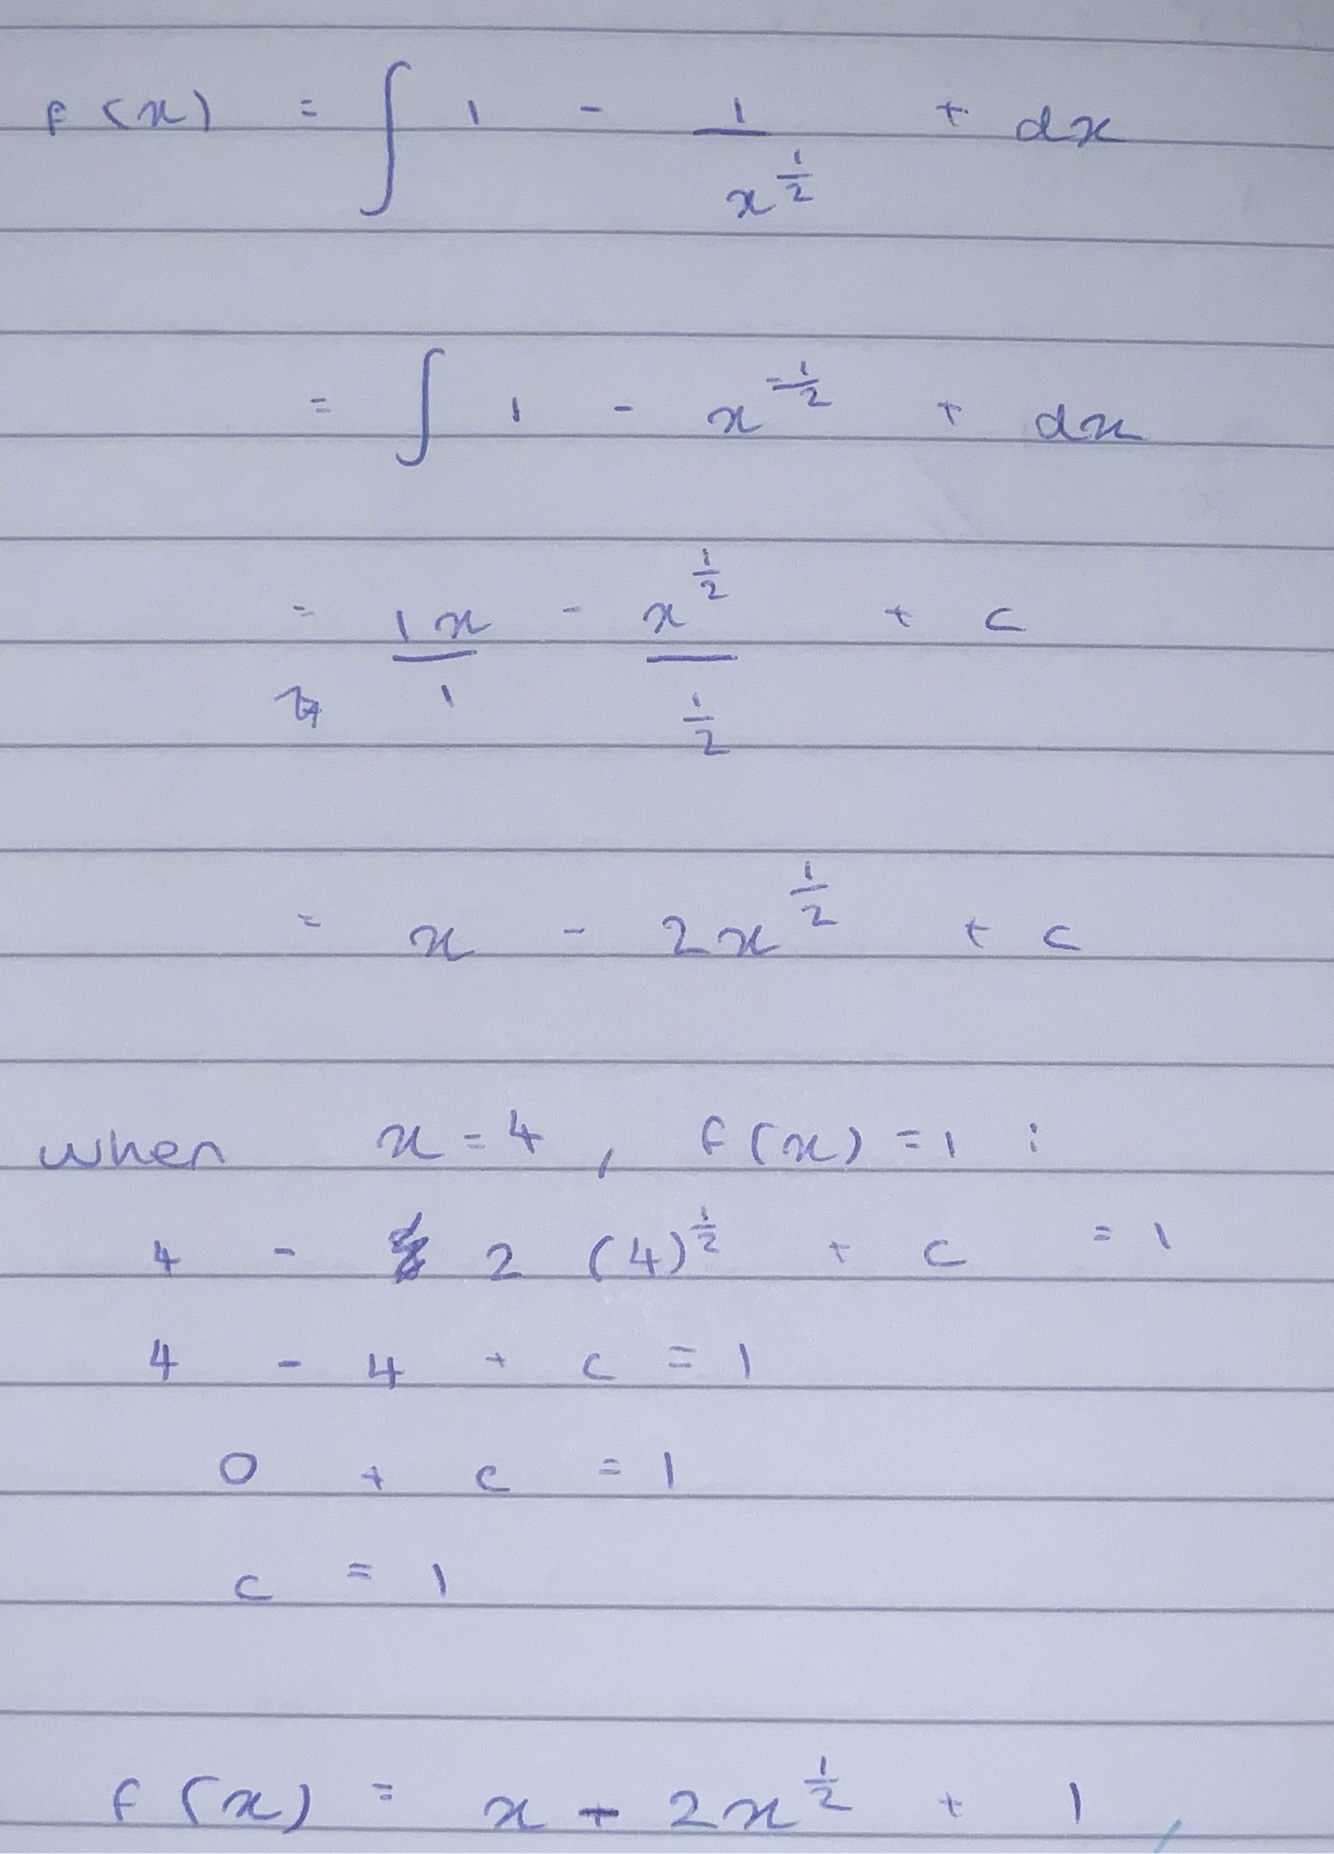 f(x) = ∫ 1 - 1/x^(1/2) + dx
= ∫ 1 - x^(-1/2) + dx
= 1x/1 - x^(1/2)/(1/2) + c
= x - 2x^(1/2) + c
when x = 4, f(x) = 1 :
4 - 2 (4)^(1/2) + c = 1
4 - 4 + c = 1
0 + c = 1
c = 1
f(x) = x - 2x^(1/2) + 1